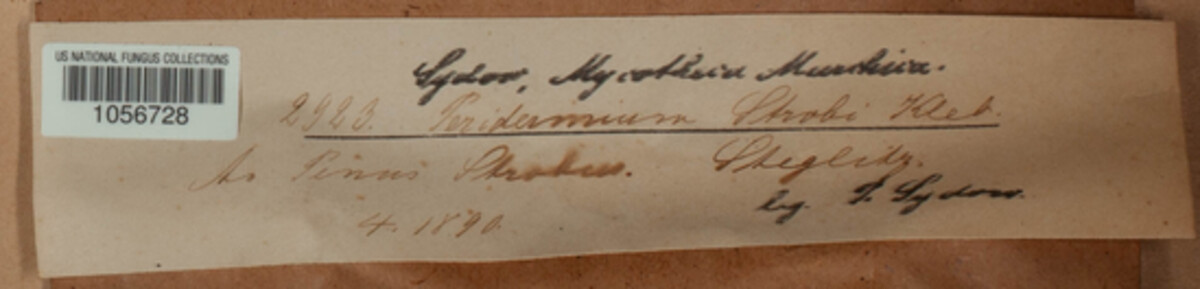 US NATIONAL FUNGUS COLLECTIONS
1056728
Sydow, Mycotheca Marchica.
2923. Peridermium Strobi Kleb.
An Pinus Strobus. Steglitz.
4. 1890.
leg. P. Sydow.